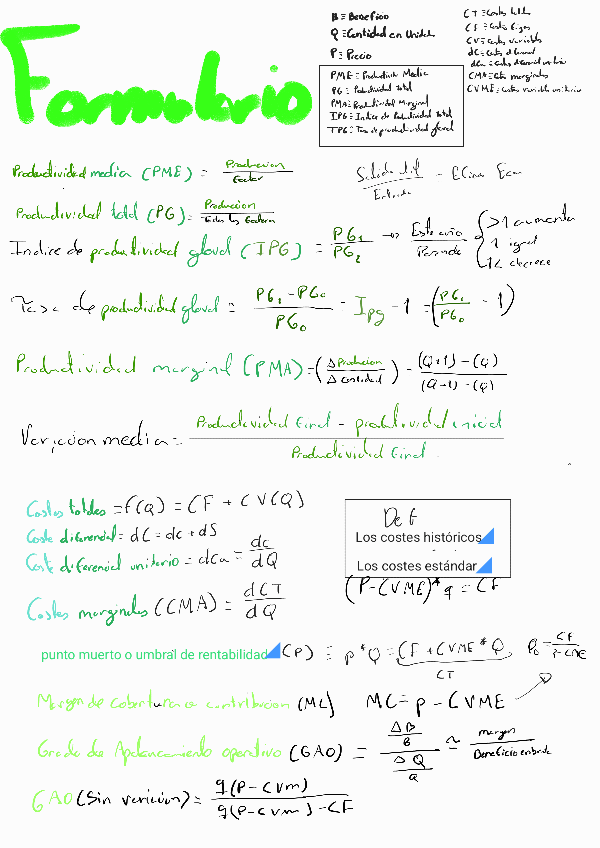 Formulario
B = Beneficio
Q = Cantidad en Unidades
P = Precio
CT = Costes totales
CF = Costes fijos
CV = Costes variables
dC = Costes diferencial
dCu = Costes diferencial unitario
CMA = Costes marginales
CVME = Costes variable unitario
PME = Productividad Media
PG = Productividad total
PMA = Productividad Marginal
IPG = Indice de Productividad total
TPG = Tasa de productividad gloval
Productividad media (PME) = Produccion / Factor
Salida util / Entrada
Productividad total (PG) = Produccion / todos los factores
Indice de productividad gloval (IPG) = PG1 / PG2 → Este año / Pasado
>1 aumenta
1 igual
1< decrece
Tasa de productividad gloval = PG1 - PG0 / PG0 = Ipg - 1 = (PG1 / PG0 - 1)
Productividad marginal (PMA) = (Δ Produccion / Δ Cantidad) = (Q+1) - (Q) / (Q+1) - (Q)
Variacion media = Productividad final - productividad inicial / Productividad final
Costes totales = f(Q) = CF + CV(Q)
Coste diferencial = dC = dc + dS
Coste diferencial unitario = dCu = dc / dQ
Costes marginales (CMA) = dCT / dQ
Def
Los costes históricos
Los costes estándar
(P-CVME)*q = CF
punto muerto o umbral de rentabilidad (P) = p*Q = CF + CVME*Q
CT
P0 = CF / P-CME
Margen de cobertura o contribucion (MC) MC = p - CVME
Grado de Apalancamiento operativo (GAO) = ΔB / B / ΔQ / Q ≈ margen / Beneficio
GAO (Sin variacion) = q(P-cvm) / q(P-cvm)-CF